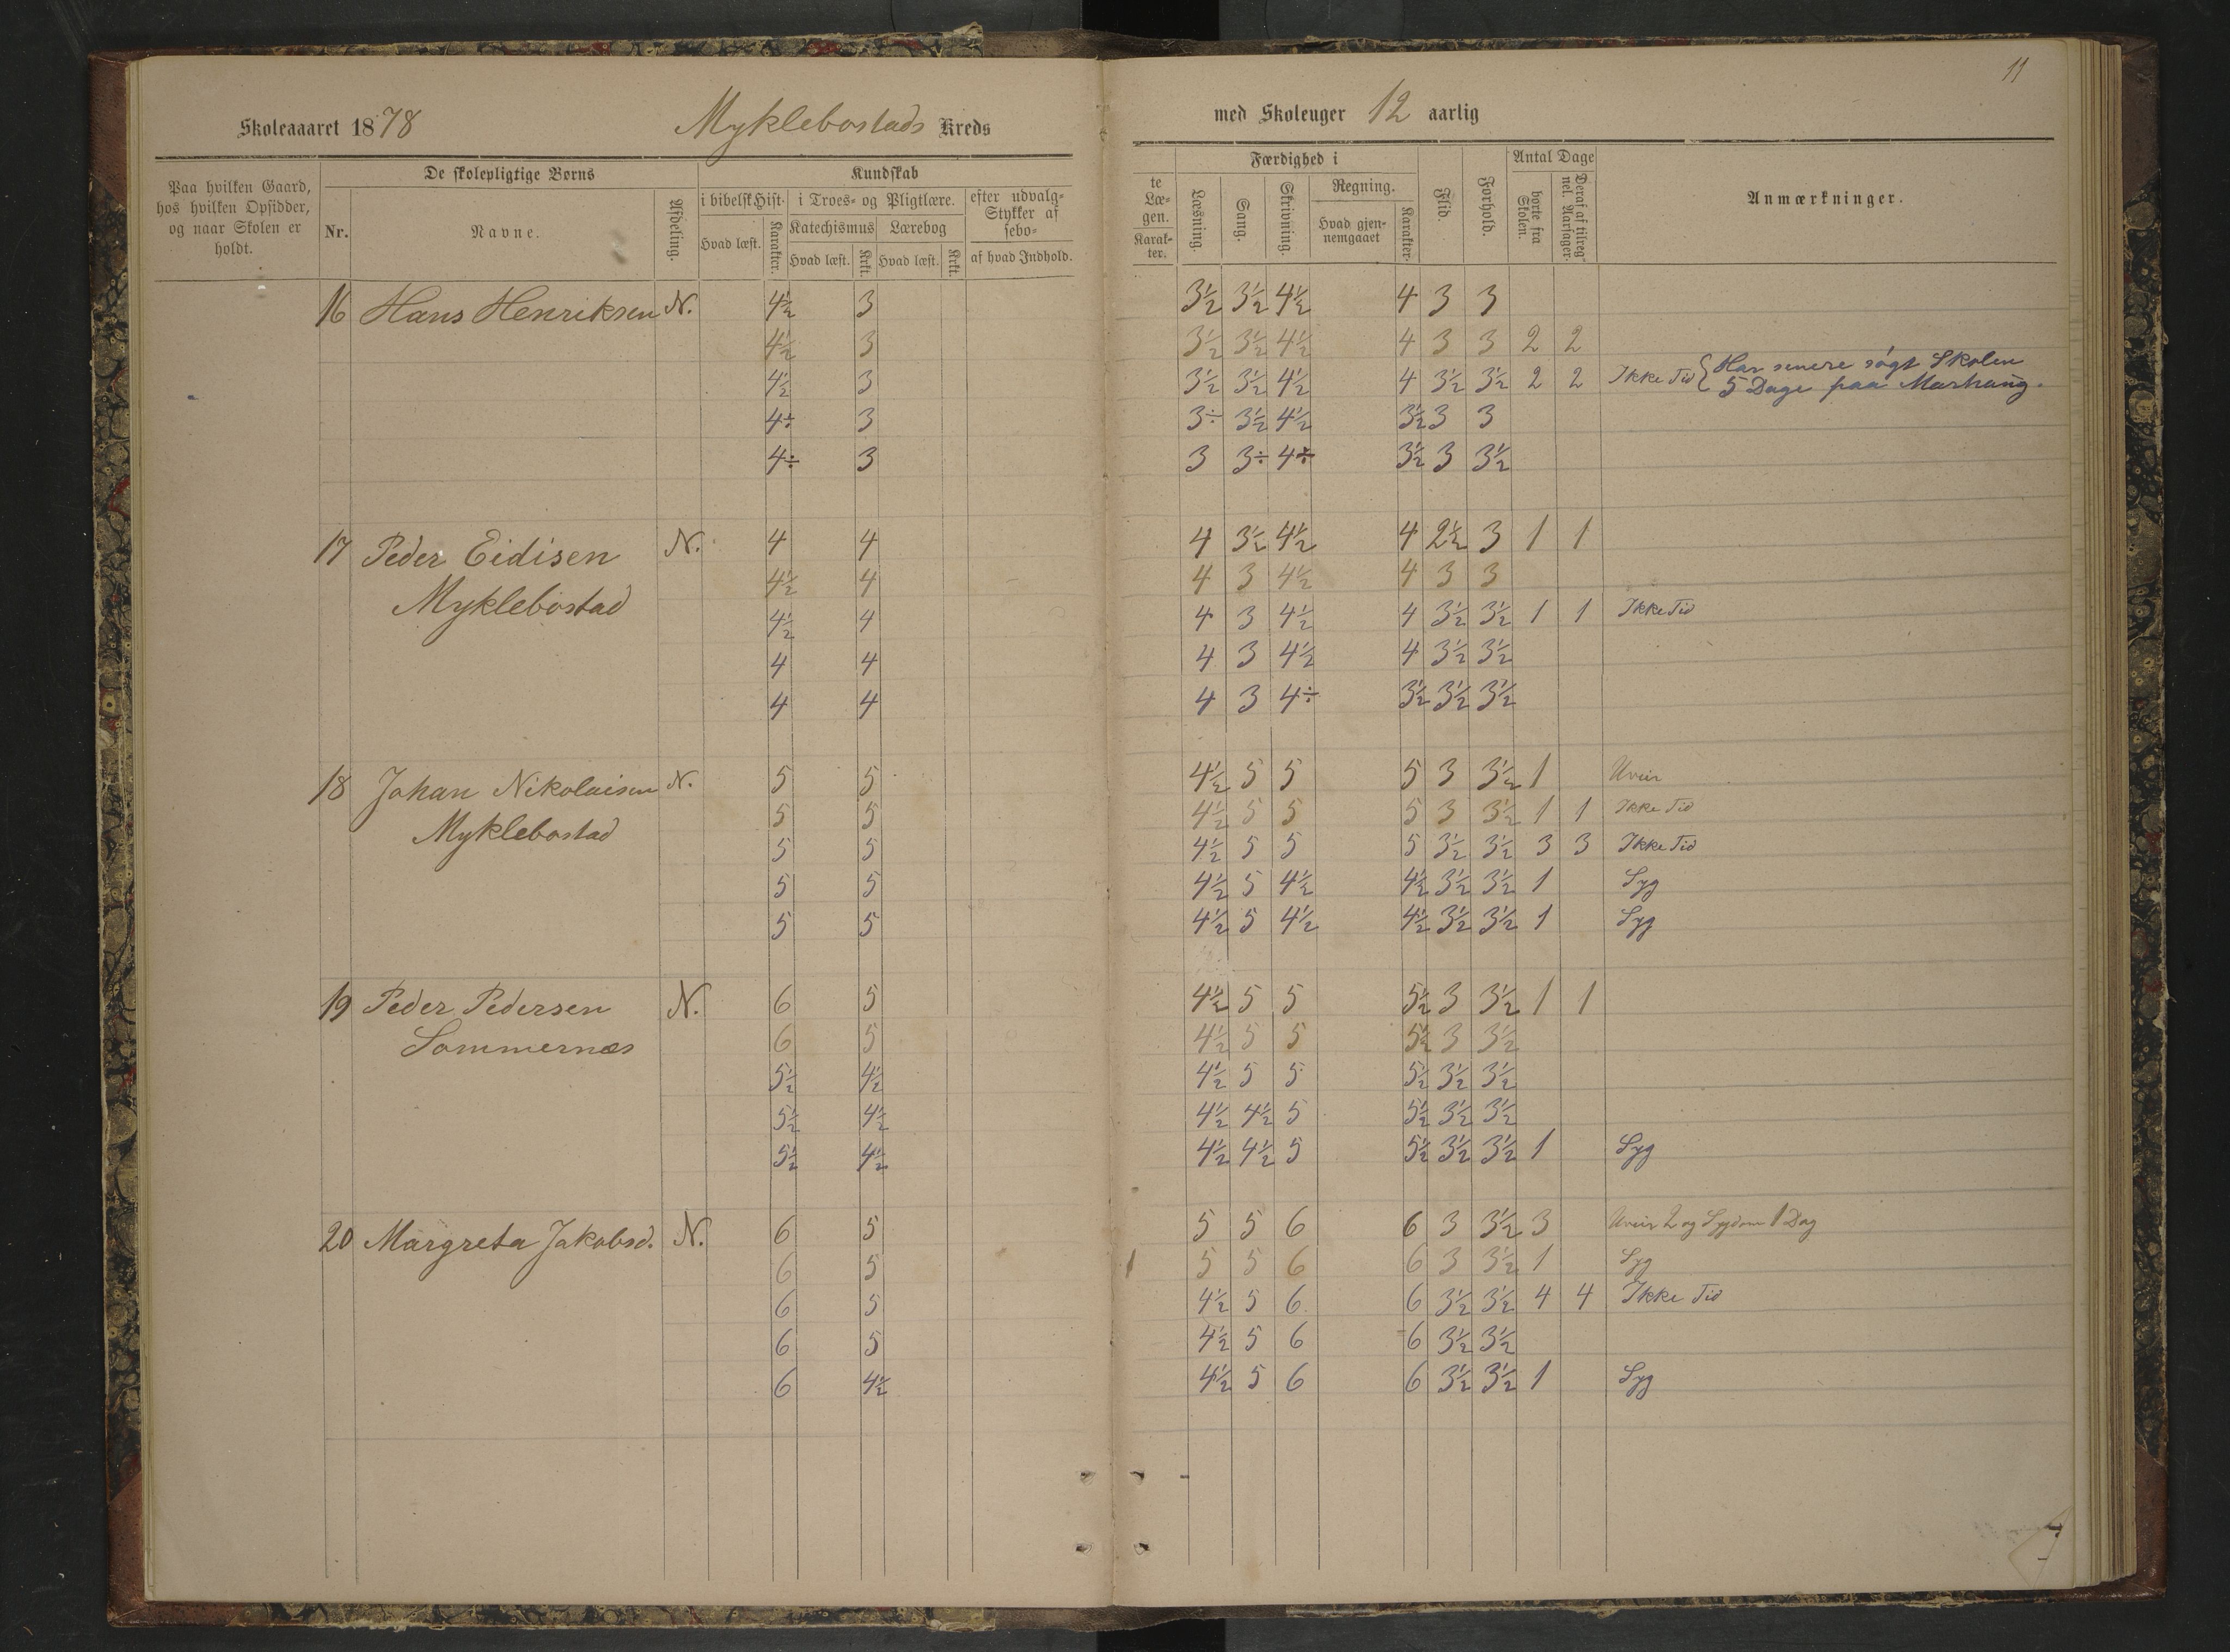 11
Skoleaaret 1878 Myklebostads Kreds med Skoleuger 12 aarlig
Paa hvilken Gaard, hos hvilken Opsidder, og naar Skolen er holdt.
De skolepligtige Børns
Nr. Navne. Afdeling.
Kundskab
i bibelsk Hist. i Troes- og Pligtlære. efter udvalg-
Stykker af
sebo-
Hvad læst. Karakter. Katechismus Lærebog
Hvad læst. Krkt. Hvad læst. Krkt. af hvad Indhold.
te Læ-
gen.
Karak-
ter.
Færdighed i
Læsning. Sang. Skrivning. Regning.
Hvad gjen-
nemgaaet Karakter.
Flid. Forhold.
Antal Dage
borte fra Skolen. Deraf af tilreg-
nel. Aarsager.
Anmærkninger.
16 Hans Henriksen N. 4½ 3 3½ 3½ 4½ 4 3 3
4½ 3 3½ 3½ 4½ 4 3 3 2 2
4½ 3 3½ 3½ 4½ 4 3½ 3½ 2 2 Ikke Tid { Har senere søgt Skolen
5 Dage paa Marhaug.
4÷ 3 3÷ 3½ 4½ 3½ 3 3
4÷ 3 3 3÷ 4÷ 3½ 3 3½
17 Peder Eidisen N. 4 4 4 3½ 4½ 4 2½ 3 1 1
Myklebostad 4½ 4 4 3 4½ 4 3 3
4½ 4 4 3 4½ 4 3½ 3½ 1 1 Ikke Tid
4 4 4 3 4½ 4 3½ 3½
4 4 4 3 4÷ 3½ 3½ 3½
18 Johan Nikolaisen N. 5 5 4½ 5 5 5 3 3½ 1 Uveir
Myklebostad 5 5 4½ 5 5 5 3 3½ 1 1 Ikke Tid
5 5 4½ 5 5 5 3½ 3½ 3 3 Ikke Tid
5 5 4½ 5 4½ 4½ 3½ 3½ 1 Syg
5 5 4½ 5 4½ 4½ 3½ 3½ 1 Syg
19 Peder Pedersen N. 6 5 4½ 5 5 5½ 3 3½ 1 1
Sommernæs 6 5 4½ 5 5 5½ 3 3½
5½ 4½ 4½ 5 5 5½ 3½ 3½
5½ 4½ 4½ 4½ 5 5½ 3½ 3½
5½ 4½ 4½ 4½ 5 5½ 3½ 3½ 1 Syg
20 Margreta Jakobsd. N. 6 5 5 5 6 6 3 3½ 3 Uveir 2 og Sygdom 1 Dag
6 5 5 5 6 6 3 3½ 1 Syg
6 5 4½ 5 6 6 3½ 3½ 4 4 Ikke Tid
6 5 4½ 5 6 6 3½ 3½
6 4½ 4½ 5 6 6 3½ 3½ 1 Syg